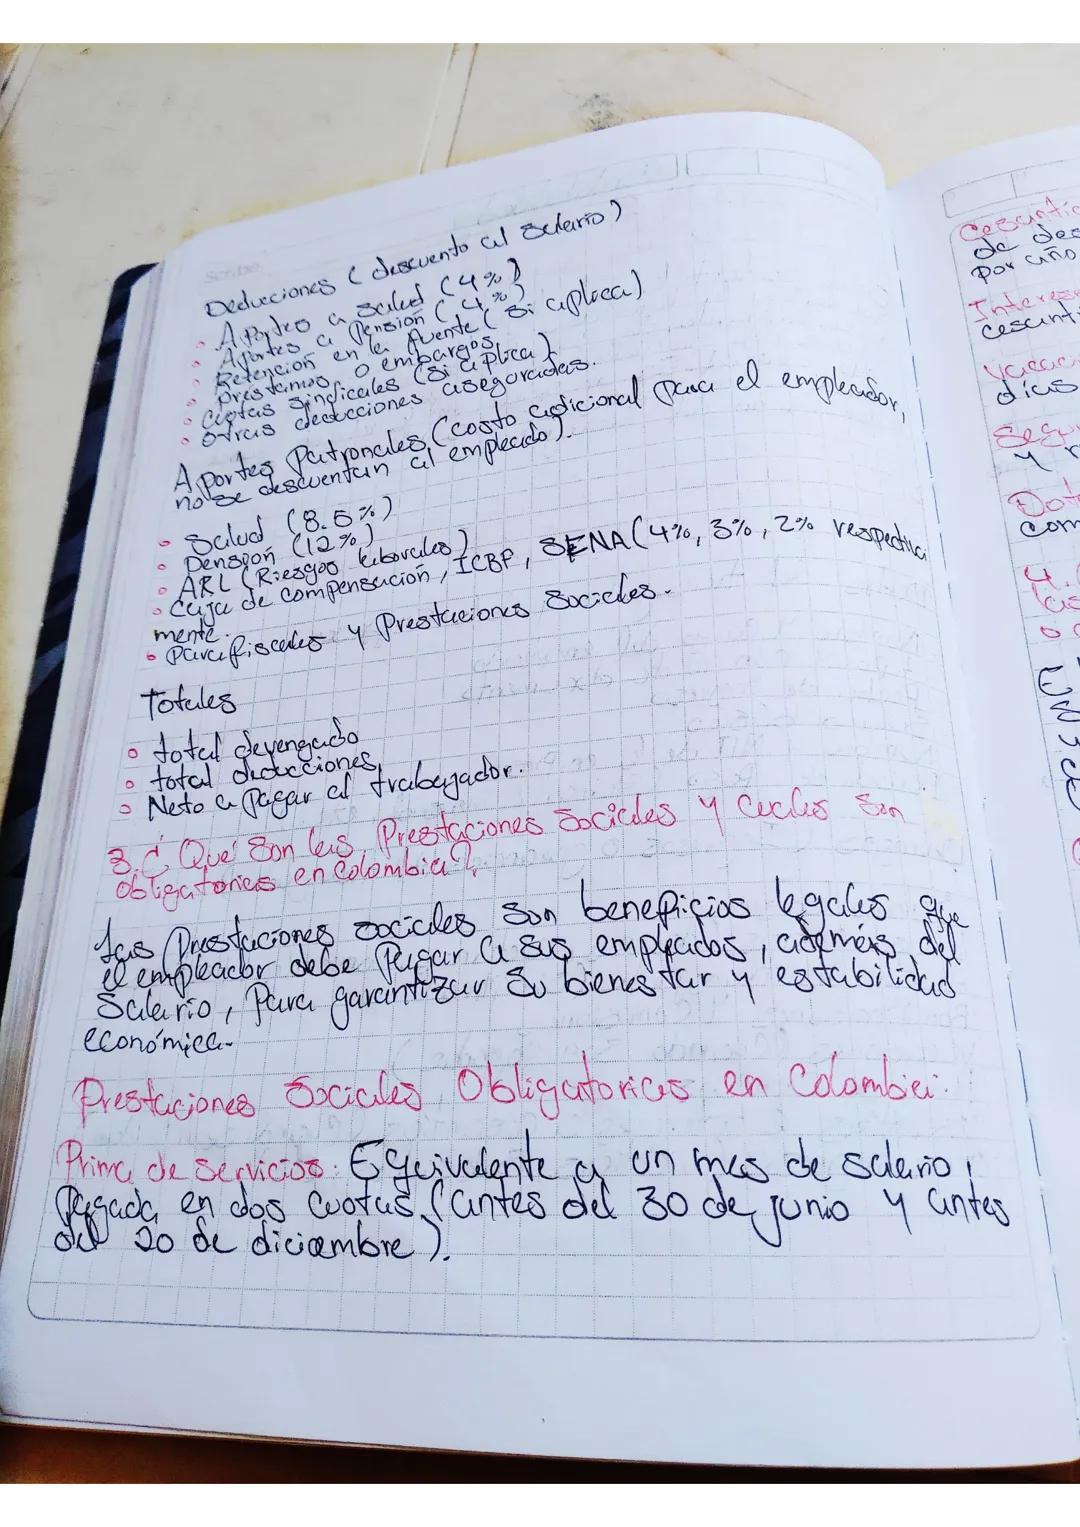 Scribe
Deducciones (descuento al Salario)
• Aportes a salud (4%)
• Aportes a Pensión (4%)
• Retención en la fuente (si aplica)
• Prestamos o embargos
• cuotas sindicales (si aplica)
• otras deducciones aseguradas.
Aportes Patronales (costo adicional para el empleador,
no se descuentan al empleado).
• Salud (8.5%)
• Pensión (12%)
• ARL (Riesgos laborales)
• Caja de compensación, ICBF, SENA (4%, 3%, 2% respectiva
mente.
• Parafiscales y Prestaciones Sociales.
Totales
• total devengado
• total deducciones
• Neto a Pagar al trabajador.
3. ¿ Qué Son las Prestaciones Sociales y cuales Son
obligatorias en Colombia?
Las Prestaciones sociales son beneficios legales que
el empleador debe Pagar a sus empleados, además del
Salario, Para garantizar su bienestar y estabilidad
económica.
Prestaciones Sociales Obligatorias en Colombia:
Prima de servicios: Equivalente a un mes de salario,
Pagada en dos cuotas (antes del 30 de junio y antes
del 20 de diciembre).
de des
Por año
días
y
com
4.